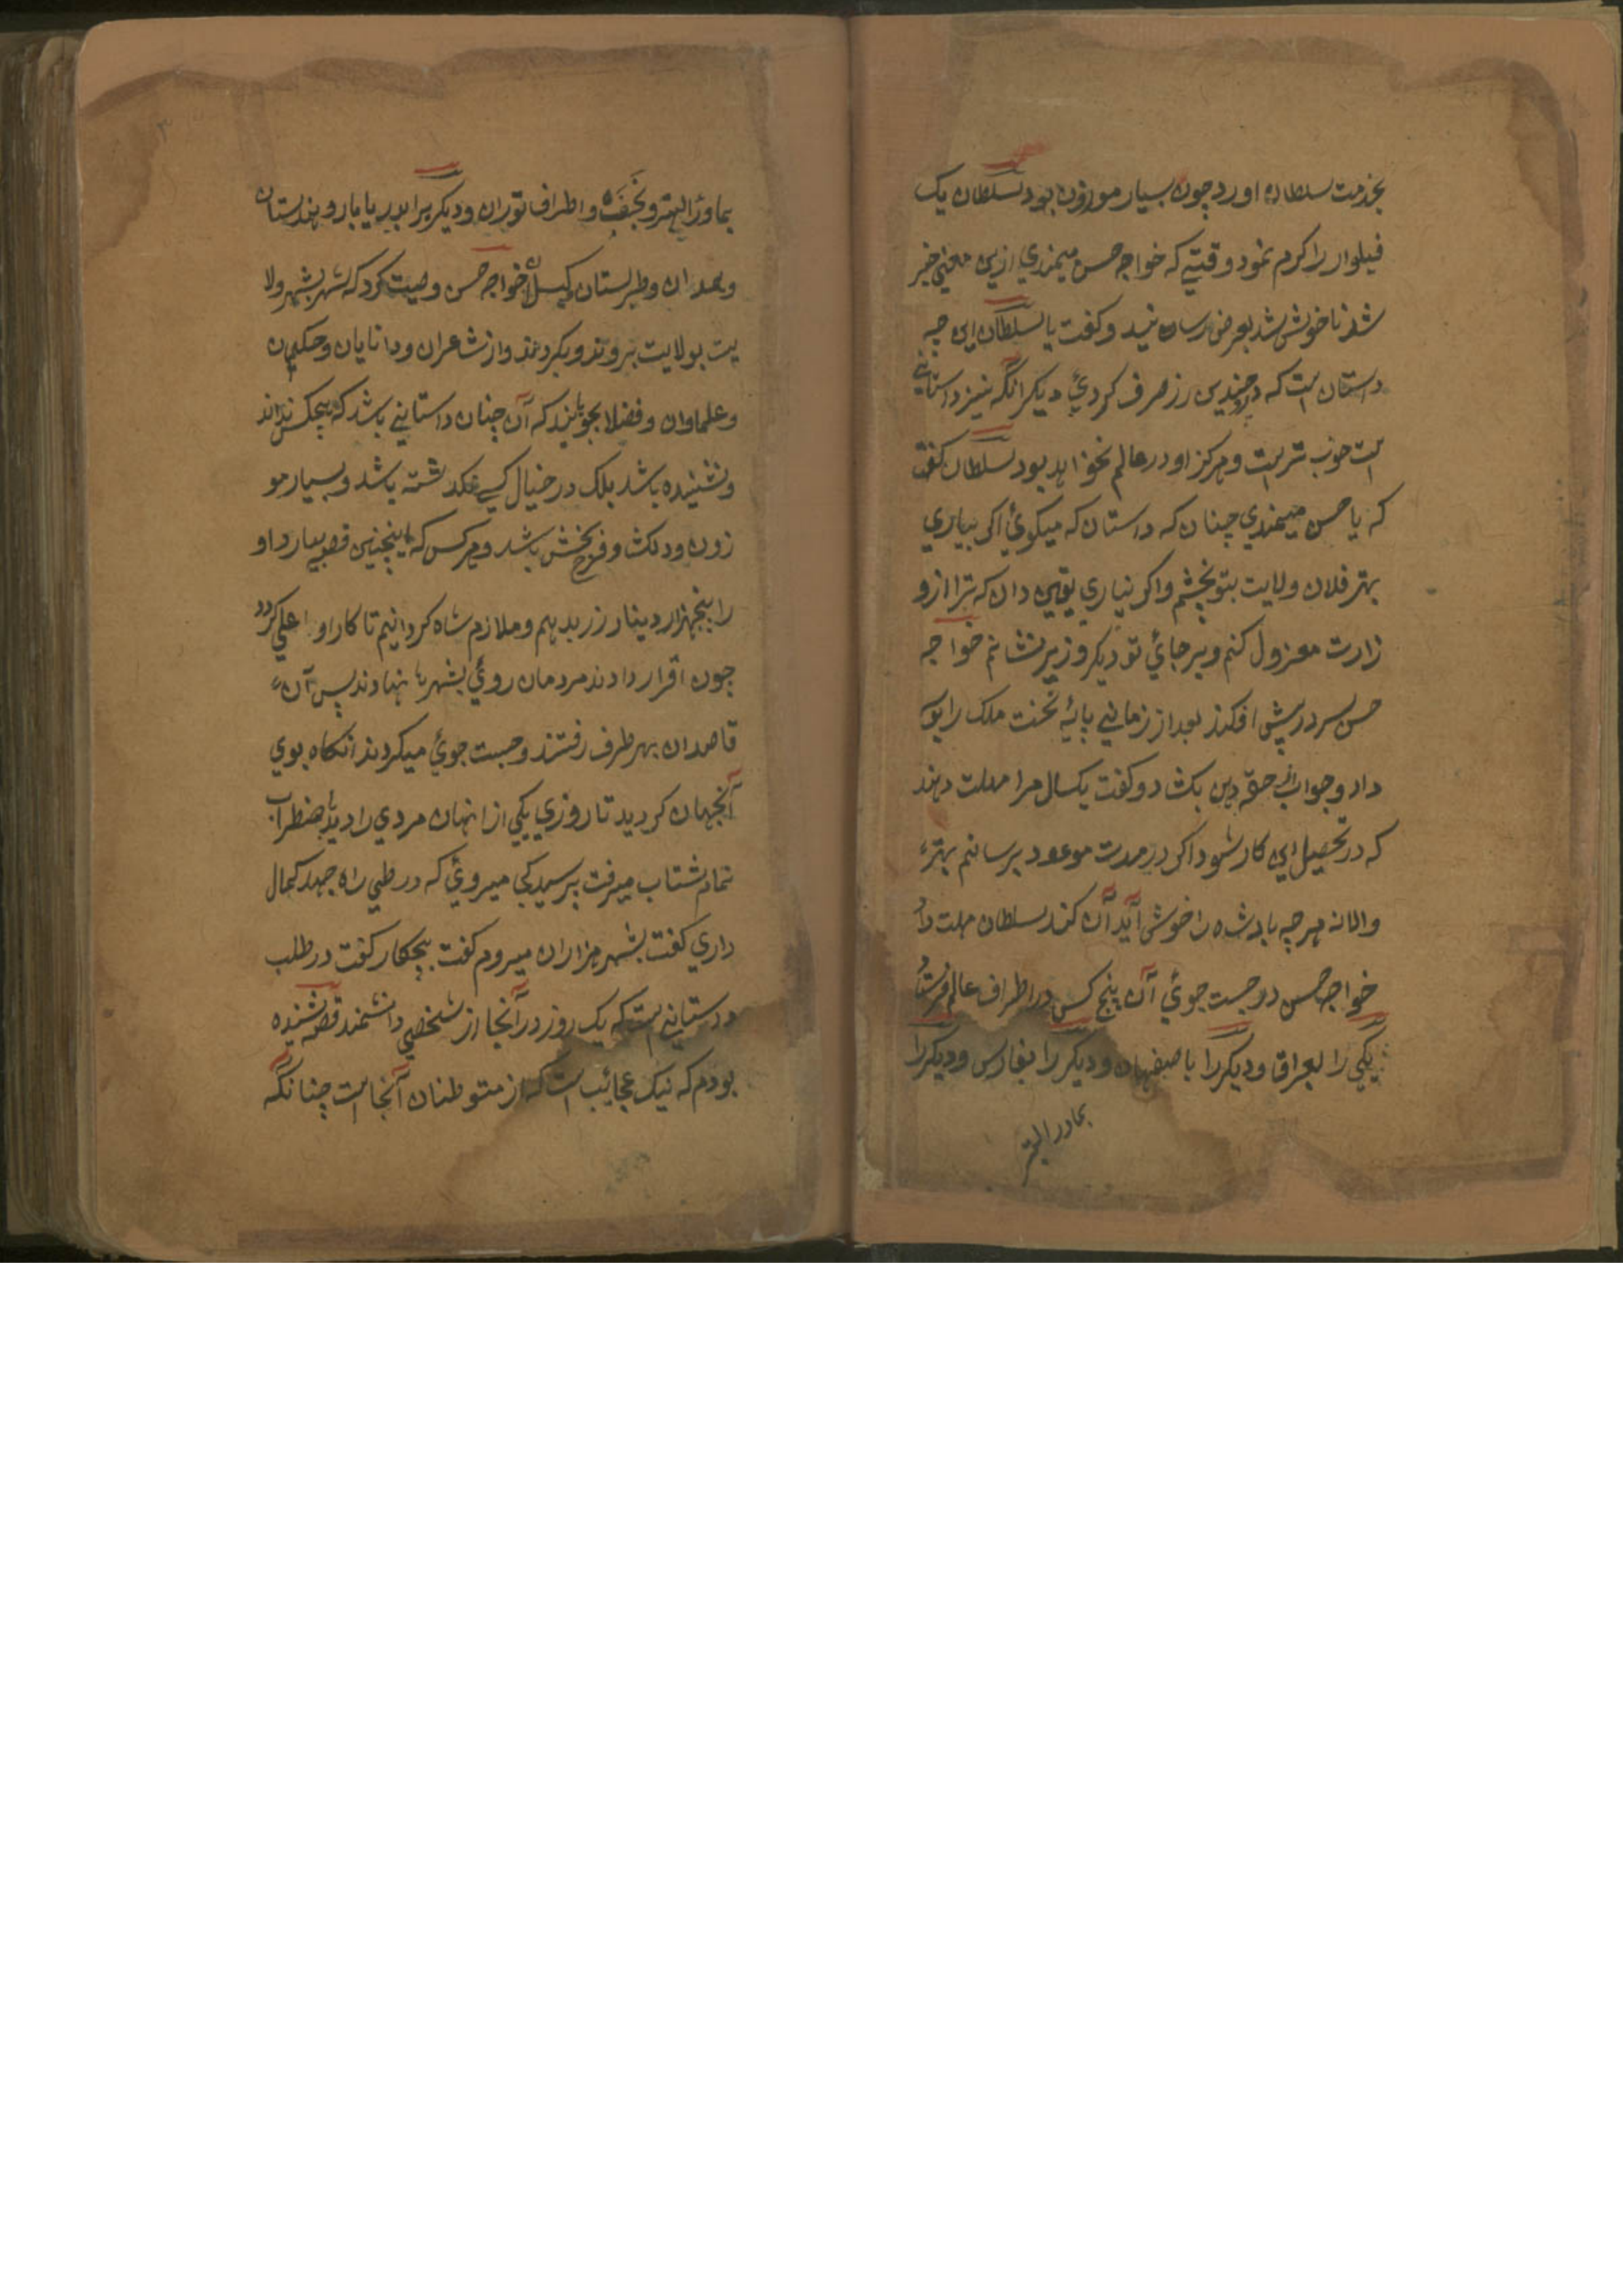 بخدمت سلطان اورد چون بسیار موزون بود سلطان یک
فیلوار زر اکرم نمود وقتیکه خواجه حسن میمندي ازین معني خبر
شد ناخوش شد بعرض رسانید و کفت یا سلطان این چه
داستان است که چندین زر صرف کردي دیکر انکه نیز داستانی
است خوب تر است و هرکز او در عالم نخواهد بود سلطان کفت
که یا حسن میمندي چنان که داستان که میکوئي اکر بیاري
بهتر فلان ولایت بتو بخشم و اکر نیاري یقین دان که ترا از و
زارت معزول کنم و بر جائي تو دیکر وزیر نشانم خواجه
حسن سر در پیش افکند بعد از زماني پایه تخت ملک را بوسه
داد و جواب دهن بکشاد و کفت یکسال مرا مهلت دهند
که در تحصیل این کار شود اکر در مدت موعود برسانم بهتر
والانه هرچه بادشاه را خوش آید آن کند سلطان مهلت داد
خواجه حسن در جست جوئي آن پنج کس در اطراف عالم فرستاد
یکي را بعراق و دیکر را باصفهان و دیکر را بفارس و دیکر را
بماورالنهر
۳
بماورالنهر و نخشب و اطراف توران و دیکر را بدریابار و هندستان
و همدان و طبرستان خواجه حسن وصیت کرد که شهر بشهر ولا
یت بولایت بروند و بکردند و از شاعران و دانایان و حکیمان
و علماوان و فضلا بجویند که آن چنان داستاني باشد که هیچکس نداند
و نشنیده باشد بلک در خیال کسی نکذشته باشد و بسیار مو
زون و دلکش و فرح بخش باشد و هر کس که اینچنین قصه بیارد او
را پنجهزار دینار زر بدهم و ملازم شاه کردانیم تا کار او اعلي کردد
چون اقرار دادند مردمان روئي بشهرها نهادند پس آن
قاصدان بهر طرف رفتند و جست جوئي میکردند انکاه بوي
آنجهان کردید تا روزي یکي از انهان مردي را دید باضطراب
تمام شتاب میرفت پرسید کجا میروي که در طي راه جهد کمال
داري کفت بشهر مزاران میروم کفت بچکار کفت در طلب
داستاني است که یک روز در آنجا از شخصي دانشمند قصه شنیده
بودم که نیک عجائب است که از متوطنان آنجا است چنانکه